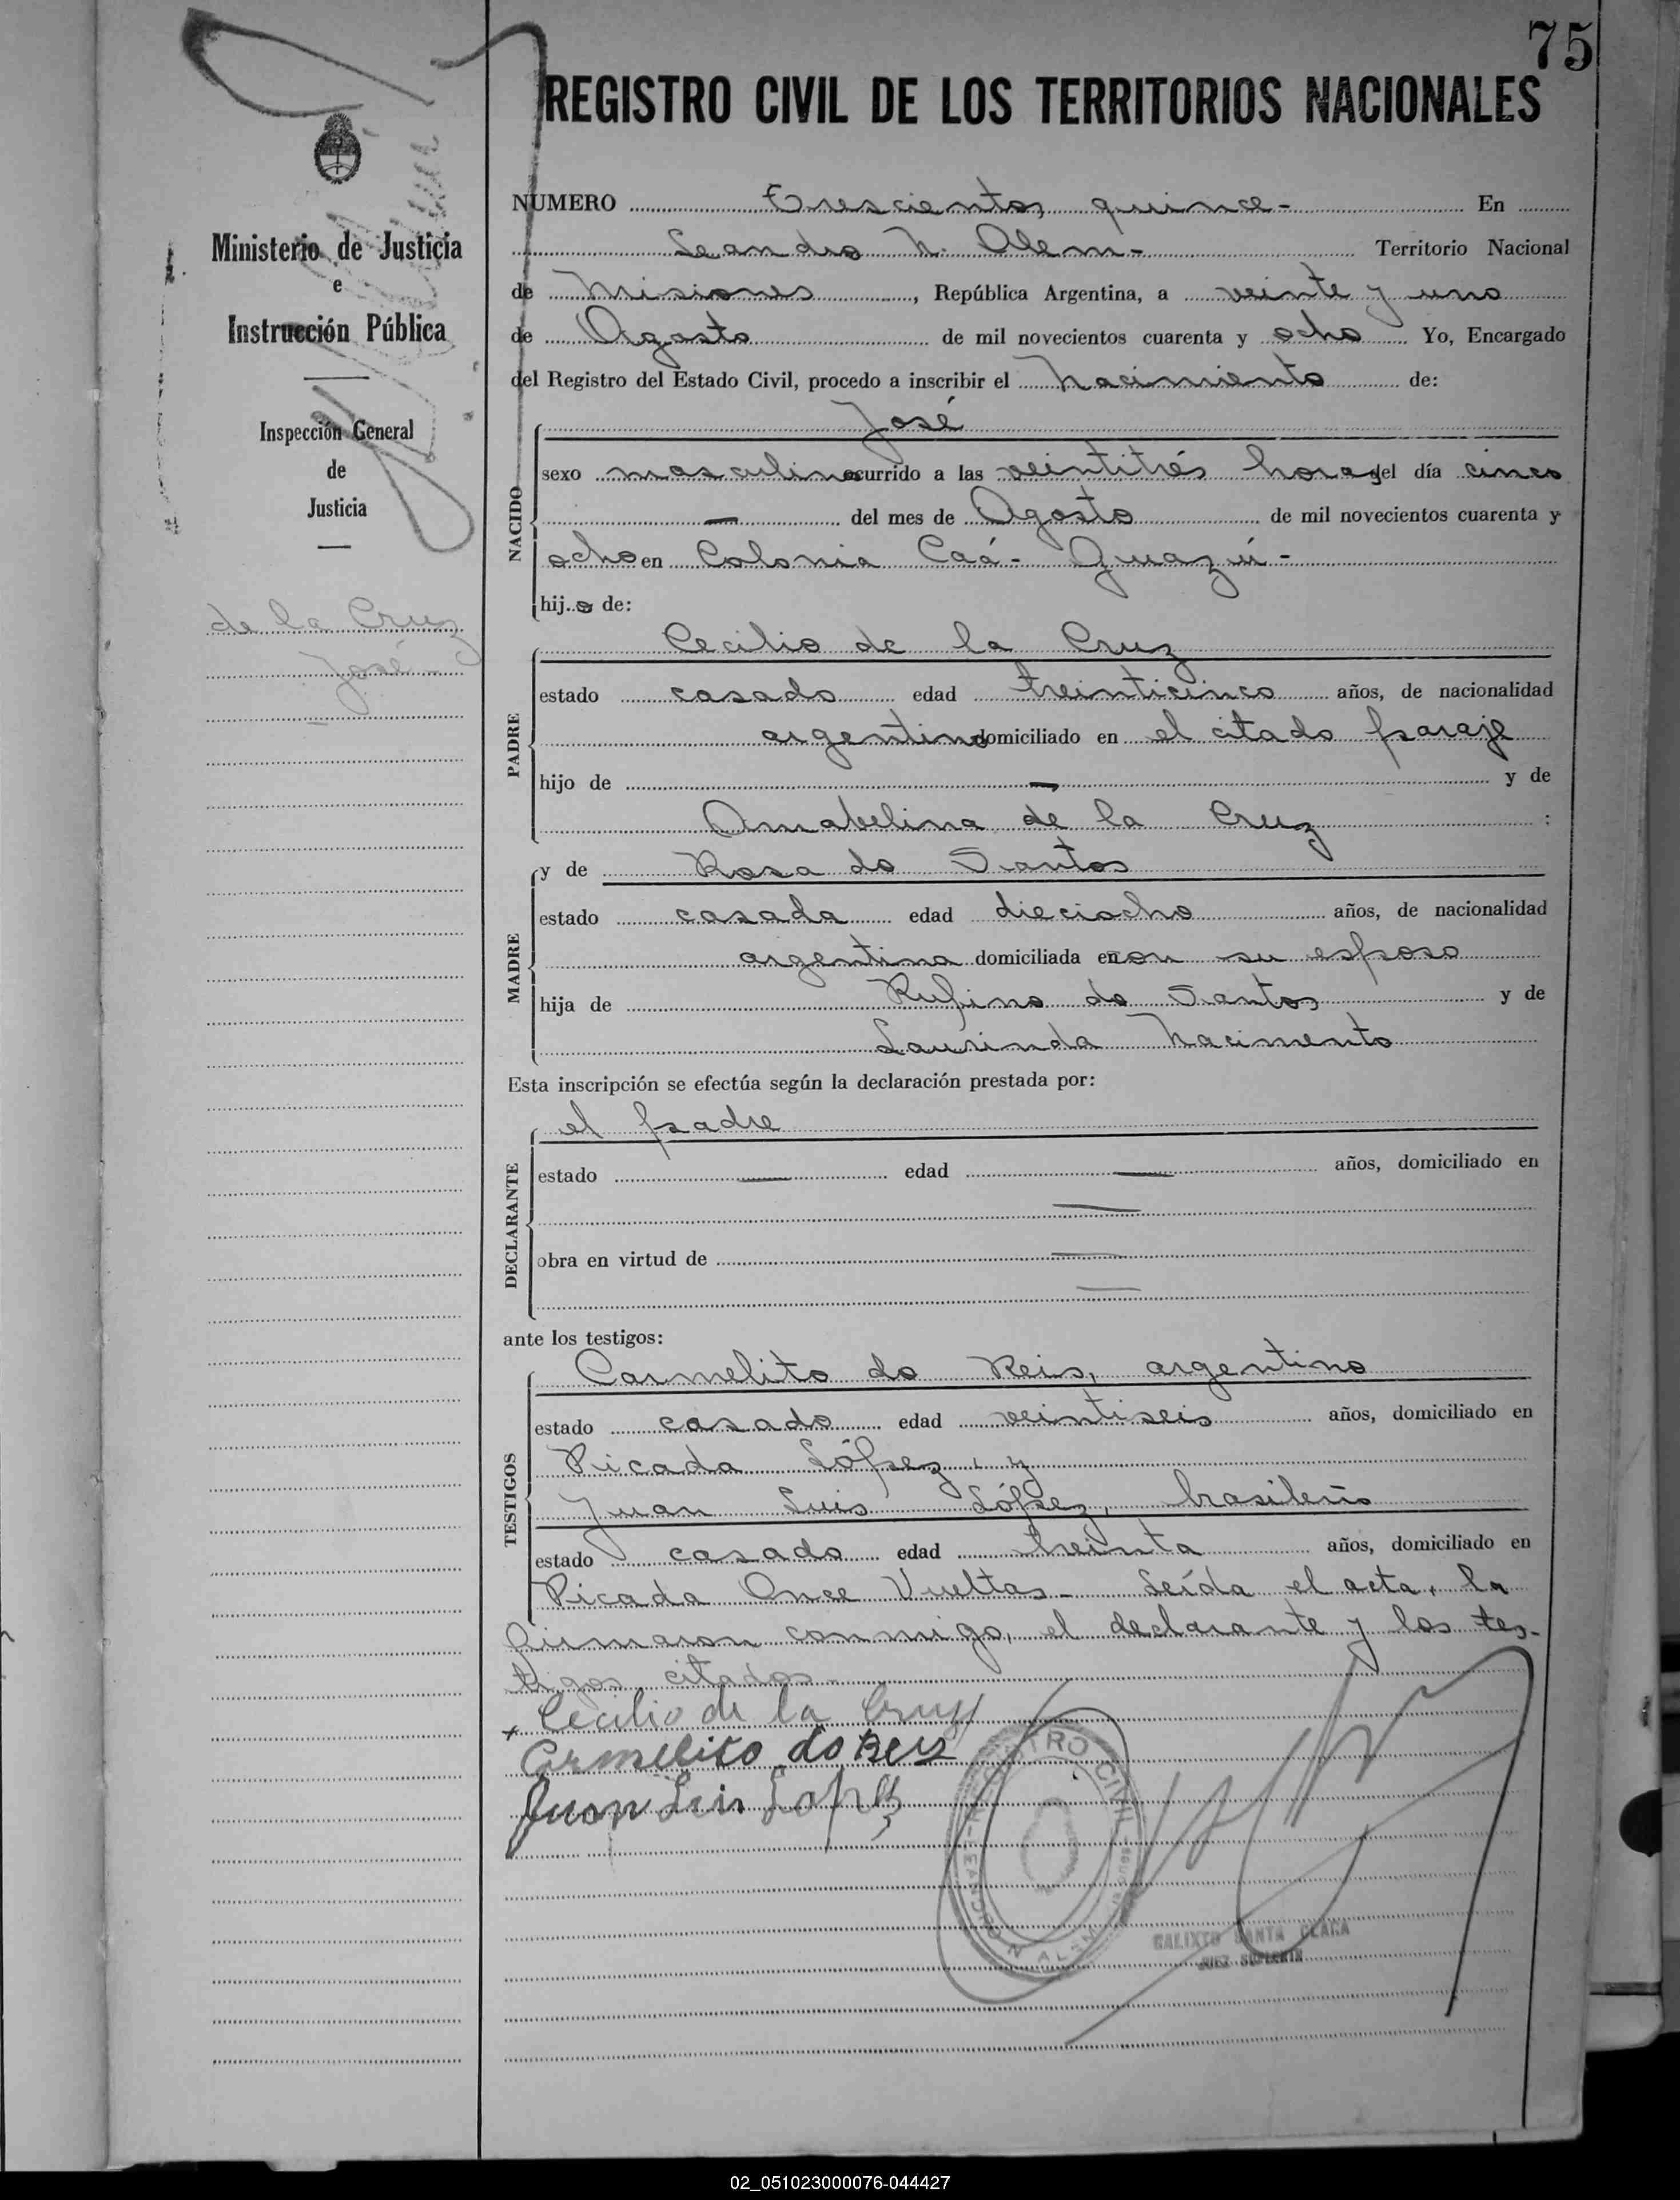 75
REGISTRO CIVIL DE LOS TERRITORIOS NACIONALES
Ministerio de Justicia
e
Instrucción Pública
Inspección General
de
Justicia
de la Cruz
José
NUMERO Trescientos quince- En
Leandro N. Alem- Territorio Nacional
de Misiones, República Argentina, a veinte y uno
de Agosto de mil novecientos cuarenta y ocho Yo, Encargado
del Registro del Estado Civil, procedo a inscribir el Nacimiento de:
NACIDO
José
sexo masculino ocurrido a las veintitrés horas del día cinco
— del mes de Agosto de mil novecientos cuarenta y
ocho en Colonia Caá-Guazú-
hijo de:
PADRE
Cecilio de la Cruz
estado casado edad treinticinco años, de nacionalidad
argentino domiciliado en el citado paraje
hijo de — y de
Amabelina de la Cruz :
MADRE
y de Rosa do Santos
estado casada edad dieciocho años, de nacionalidad
argentina domiciliada en con su esposo
hija de Rufino do Santos y de
Laurinda Nacimento
Esta inscripción se efectúa según la declaración prestada por:
DECLARANTE
el padre
estado — edad — años, domiciliado en
—
obra en virtud de —
—
ante los testigos:
TESTIGOS
Carmelito do Reis, argentino
estado casado edad veintiseis años, domiciliado en
Picada López, y
Juan Luis López, brasileño
estado casado edad treinta años, domiciliado en
Picada Once Vueltas- Leída el acta, la
firmaron conmigo, el declarante y los tes-
tigos citados-
Cecilio de la Cruz
Carmelito do Reis
Juan Luis Lopez
REGISTRO CIVIL
LEANDRO N. ALEM
CALIXTO SANTA CLARA
JUEZ SUPLENTE
02_051023000076-044427